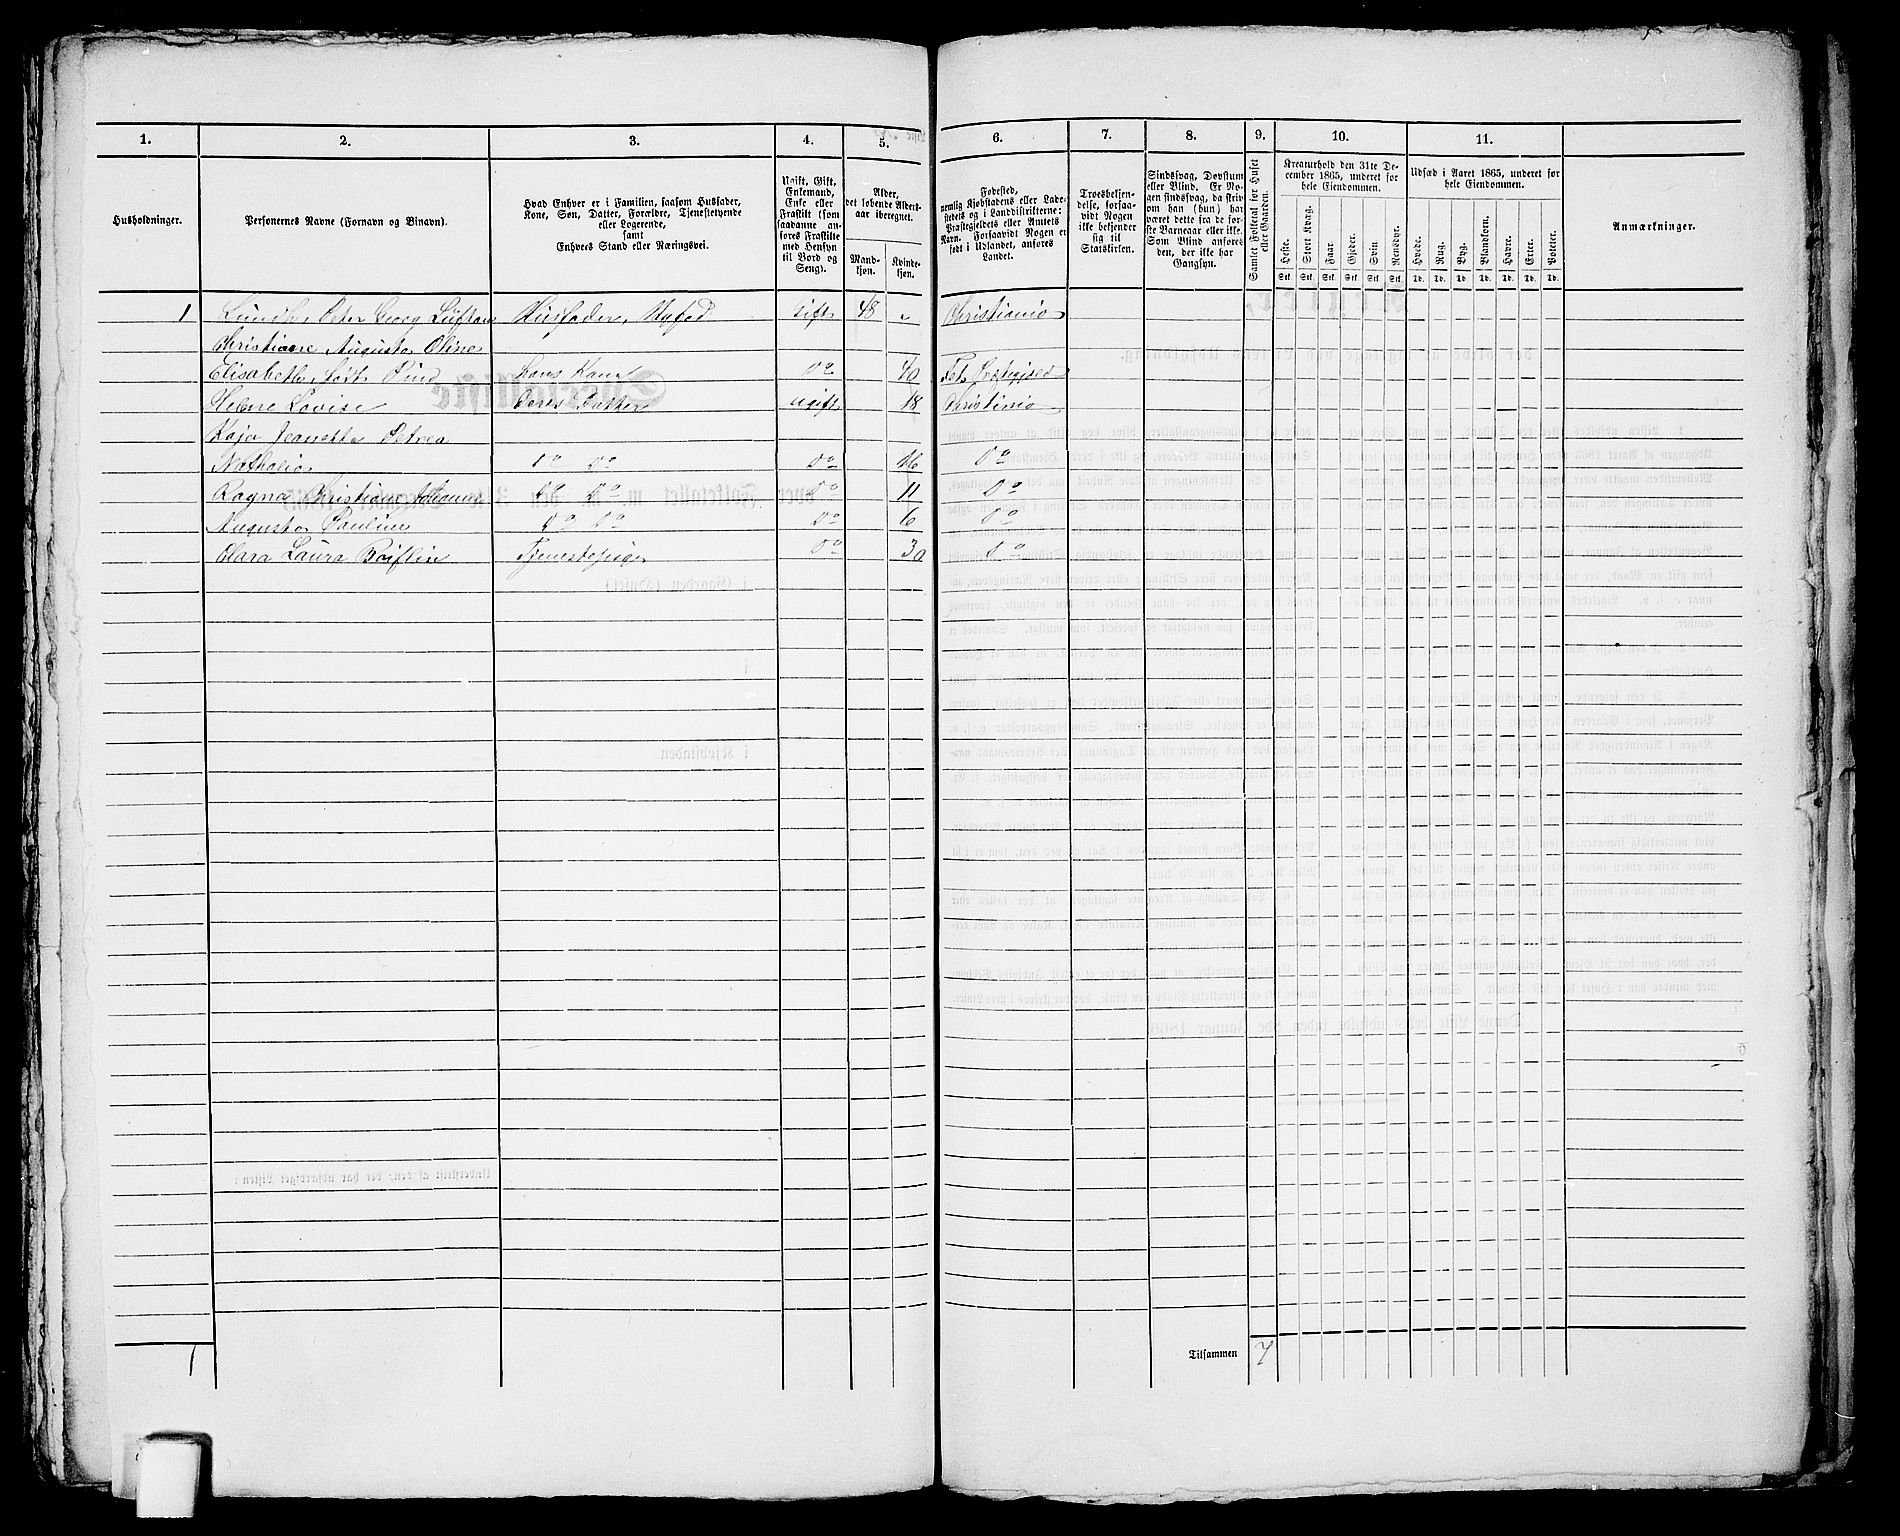 1. 2. 3. 4. 5. 6. 7. 8. 9. 10. 11.
Husholdninger.
Personernes Navne (Fornavn og Binavn).
Hvad Enhver er i Familien, saasom Husfader,
Kone, Søn, Datter, Forældre, Tjenestetyende
eller Logerende,
samt
Enhvers Stand eller Næringsvei.
Ugift, Gift,
Enkemand,
Enke eller
Fraskilt (som
saadanne an-
føres Fraskilte
med Hensyn
til Bord og
Seng).
Alder,
det løbende Alders-
aar iberegnet.
Mand-
kjøn.
Kvinde-
kjøn.
Fødested,
nemlig Kjøbstadens eller Lade-
stedets og i Landdistrikterne:
Præstegjeldets eller Amtets
Navn. Forsaavidt Nogen er
født i Udlandet, anføres
Landet.
Troesbekjen-
delse, forsaa-
vidt Nogen
ikke bekjender
sig til
Statskirken.
Sindssvag, Døvstum
eller Blind. Er No-
gen sindssvag, da skriv
om han (hun) har
været dette fra de før-
ste Barneaar eller ikke.
Som Blind anføres
den, der ikke har
Gangsyn.
Samlet Folketal for Huset
eller Gaarden.
Kreaturhold den 31te De-
cember 1865, underet for
hele Eiendommen.
Heste. Stort Kvæg. Faar. Gjeder. Svin. Rensdyr.
Stk. Stk. Stk. Stk. Stk. Stk.
Udsæd i Aaret 1865, underet for
hele Eiendommen.
Hvede. Rug. Byg. Blandkorn. Havre. Erter. Poteter.
Td. Td. Td. Td. Td. Td. Td.
Anmærkninger.
1 Peter Georg Husfader, Gift 48 „ Christiania
Christiane Augusta Oline
Elisabeth, født Hans Kone Do 40 Fets Præstegjeld
Helene Lovise Deres Datter ugift 18 Christiania
Kaja Jeanette Petrea
Nathalia Do Do Do 16 Do
Ragna Christiane Johanne Do Do Do 11 Do
Augusta Pauline Do Do Do 6 Do
Clara Laura Tjenestepige Do 30 Do
1
Tilsammen 7